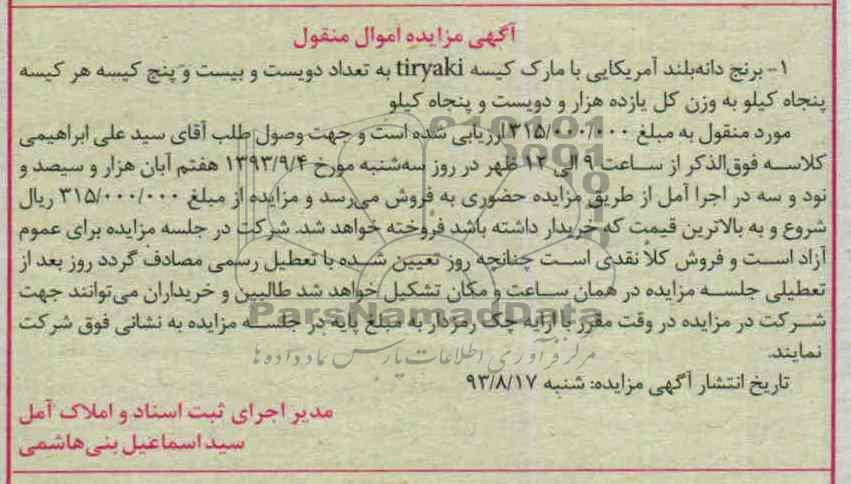 آگهی مزایده اموال منقول
۱- برنج دانه‌بلند آمریکایی با مارک کیسه tiryaki به تعداد دویست و بیست و پنج کیسه هر کیسه
پنجاه کیلو به وزن کل یازده هزار و دویست و پنجاه کیلو
مورد منقول به مبلغ ۳۱۵/۰۰۰/۰۰۰ ارزیابی شده است و جهت وصول طلب آقای سید علی ابراهیمی
کلاسه فوق‌الذکر از ساعت ۹ الی ۱۲ ظهر در روز سه‌شنبه مورخ ۱۳۹۳/۹/۴ هفتم آبان هزار و سیصد و
نود و سه در اجرا آمل از طریق مزایده حضوری به فروش می‌رسد و مزایده از مبلغ ۳۱۵/۰۰۰/۰۰۰ ریال
شروع و به بالاترین قیمت که خریدار داشته باشد فروخته خواهد شد. شرکت در جلسه مزایده برای عموم
آزاد است و فروش کلاً نقدی است چنانچه روز تعیین شده با تعطیل رسمی مصادف گردد روز بعد از
تعطیلی جلسه مزایده در همان ساعت و مکان تشکیل خواهد شد طالبین و خریداران می‌توانند جهت
شرکت در مزایده در وقت مقرر با ارایه چک رمزدار به مبلغ پایه در جلسه مزایده به نشانی فوق شرکت
نمایند.
تاریخ انتشار آگهی مزایده: شنبه ۹۳/۸/۱۷
مدیر اجرای ثبت اسناد و املاک آمل
سید اسماعیل بنی‌هاشمی
ParsNamadData
مرکز فرآوری اطلاعات پارس نماد داده ها